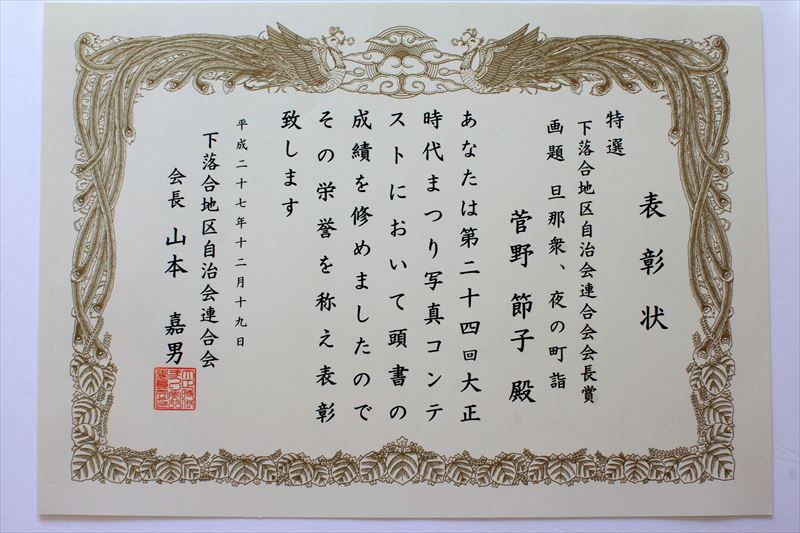 表彰状
特選
下落合地区自治会連合会会長賞
画題 旦那衆、夜の町詣
菅野節子殿
あなたは第二十四回大正
時代まつり写真コンテ
ストにおいて頭書の
成績を修めましたので
その栄誉を称え表彰
致します
平成二十七年十二月十九日
下落合地区自治会連合会
会長 山本 嘉男